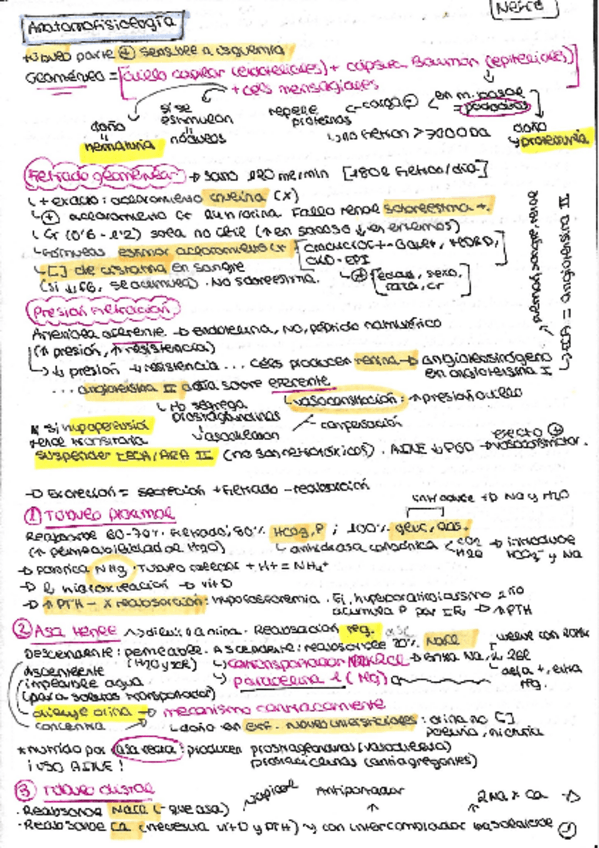 Nefro
Anatomofisiología
túbulo parte ⊕ sensible a isquemia
Glomérulo = [ovillo capilar (endoteliales) + cápsula Bowman (epiteliales)]
+ céls mensagiales
daño
"
hematuria
si se estimulan
"
nódulos
repele proteínas
carga ⊖
en m. basal
= podocitos
↳ no filtran > 7000 Da
daño
↳ proteinuria
Filtrado glomerular → sano 120 ml/min [180 l filtran/día]
↳ + exacto: aclaramiento inulina (x)
↳ ⊕ aclaramiento Cr
en orina. Fallo renal sobreestima +.
↳ Cr (0'6 - 1'2) sola no útil (↑ en sanos o ↓ en enfermos)
↳ Fórmulas estiman aclaramiento Cr [Cockcroft-Gault, MDRD, CKD-EPI]
↳ ⊕ [edad, sexo, raza, Cr]
↳ [ ] de cistatina en sangre
(si ↓FG, se acumula). No sobreestima.
Presión Filtración
Arteriola aferente → endotelina, NO, péptido natriurético
(↑ presión, ↑ resistencia)
↳ ↓ presión → ↓ resistencia ... céls producen renina → angiotensinógeno
en angiotensina I
↳ ECA = angiotensina II
pulmón, sangre, renal
... angiotensina II actúa sobre eferente
↳ segrega prostaglandinas
↳ vasoconstricción: ↑ presión ovillo
vasodilatan
compensación
* si hipoperfusión
renal transitoria
suspender IECA/ARA II (no son nefrotóxicos). AINE ↓ PGD → vasoconstrictor.
efecto ⊕
→ Excreción = secreción + filtrado - reabsorción
① Túbulo proximal
introduce → Na y H2O
Reabsorbe 60-70% filtrado, 80% HCO3, P; 100% gluc, aas.
(↑ permeabilidad al H2O)
↳ anhidrasa carbónica < CO2 H2O → introduce
HCO3⁻ y Na
→ Fabrica NH3. Túbulo colector + H+ = NH4⁺
→ 1 hidroxilación → vit D
→ ↑ PTH → x reabsorción: hipofosforemia. Si, hiperparatiroidismo 2rio
acumula P por IR, → ↑ PTH
② Asa Henle → diluir la orina. Reabsorción Mg.
Descendente: permeable. Ascendente: reabsorbe 20% NaCl
(H2O y sol)
Ascendente
impermeable agua
(para solutos transportador)
↳ cotransportador NaK2Cl → entra Na, K, 2Cl
↳ paracelina 1 (Mg)
vuelve con ROMK
↳ deja +, entra Mg.
diluye orina → mecanismo contracorriente
concentra →
↳ daño en enf. túbulo intersticiales: orina no [ ]
poliuria, nicturia
* nutrido por asa recta: producen prostaglandinas (vasodilata)
¡uso AINE!
prostaciclinas (antiagregantes)
③ Túbulo distal
↳ apical
Antiportador
2Na x Ca
· Reabsorbe NaCl (- que asa)
· Reabsorbe Ca (necesita vit D y PTH) → y con intercambiador basolateral